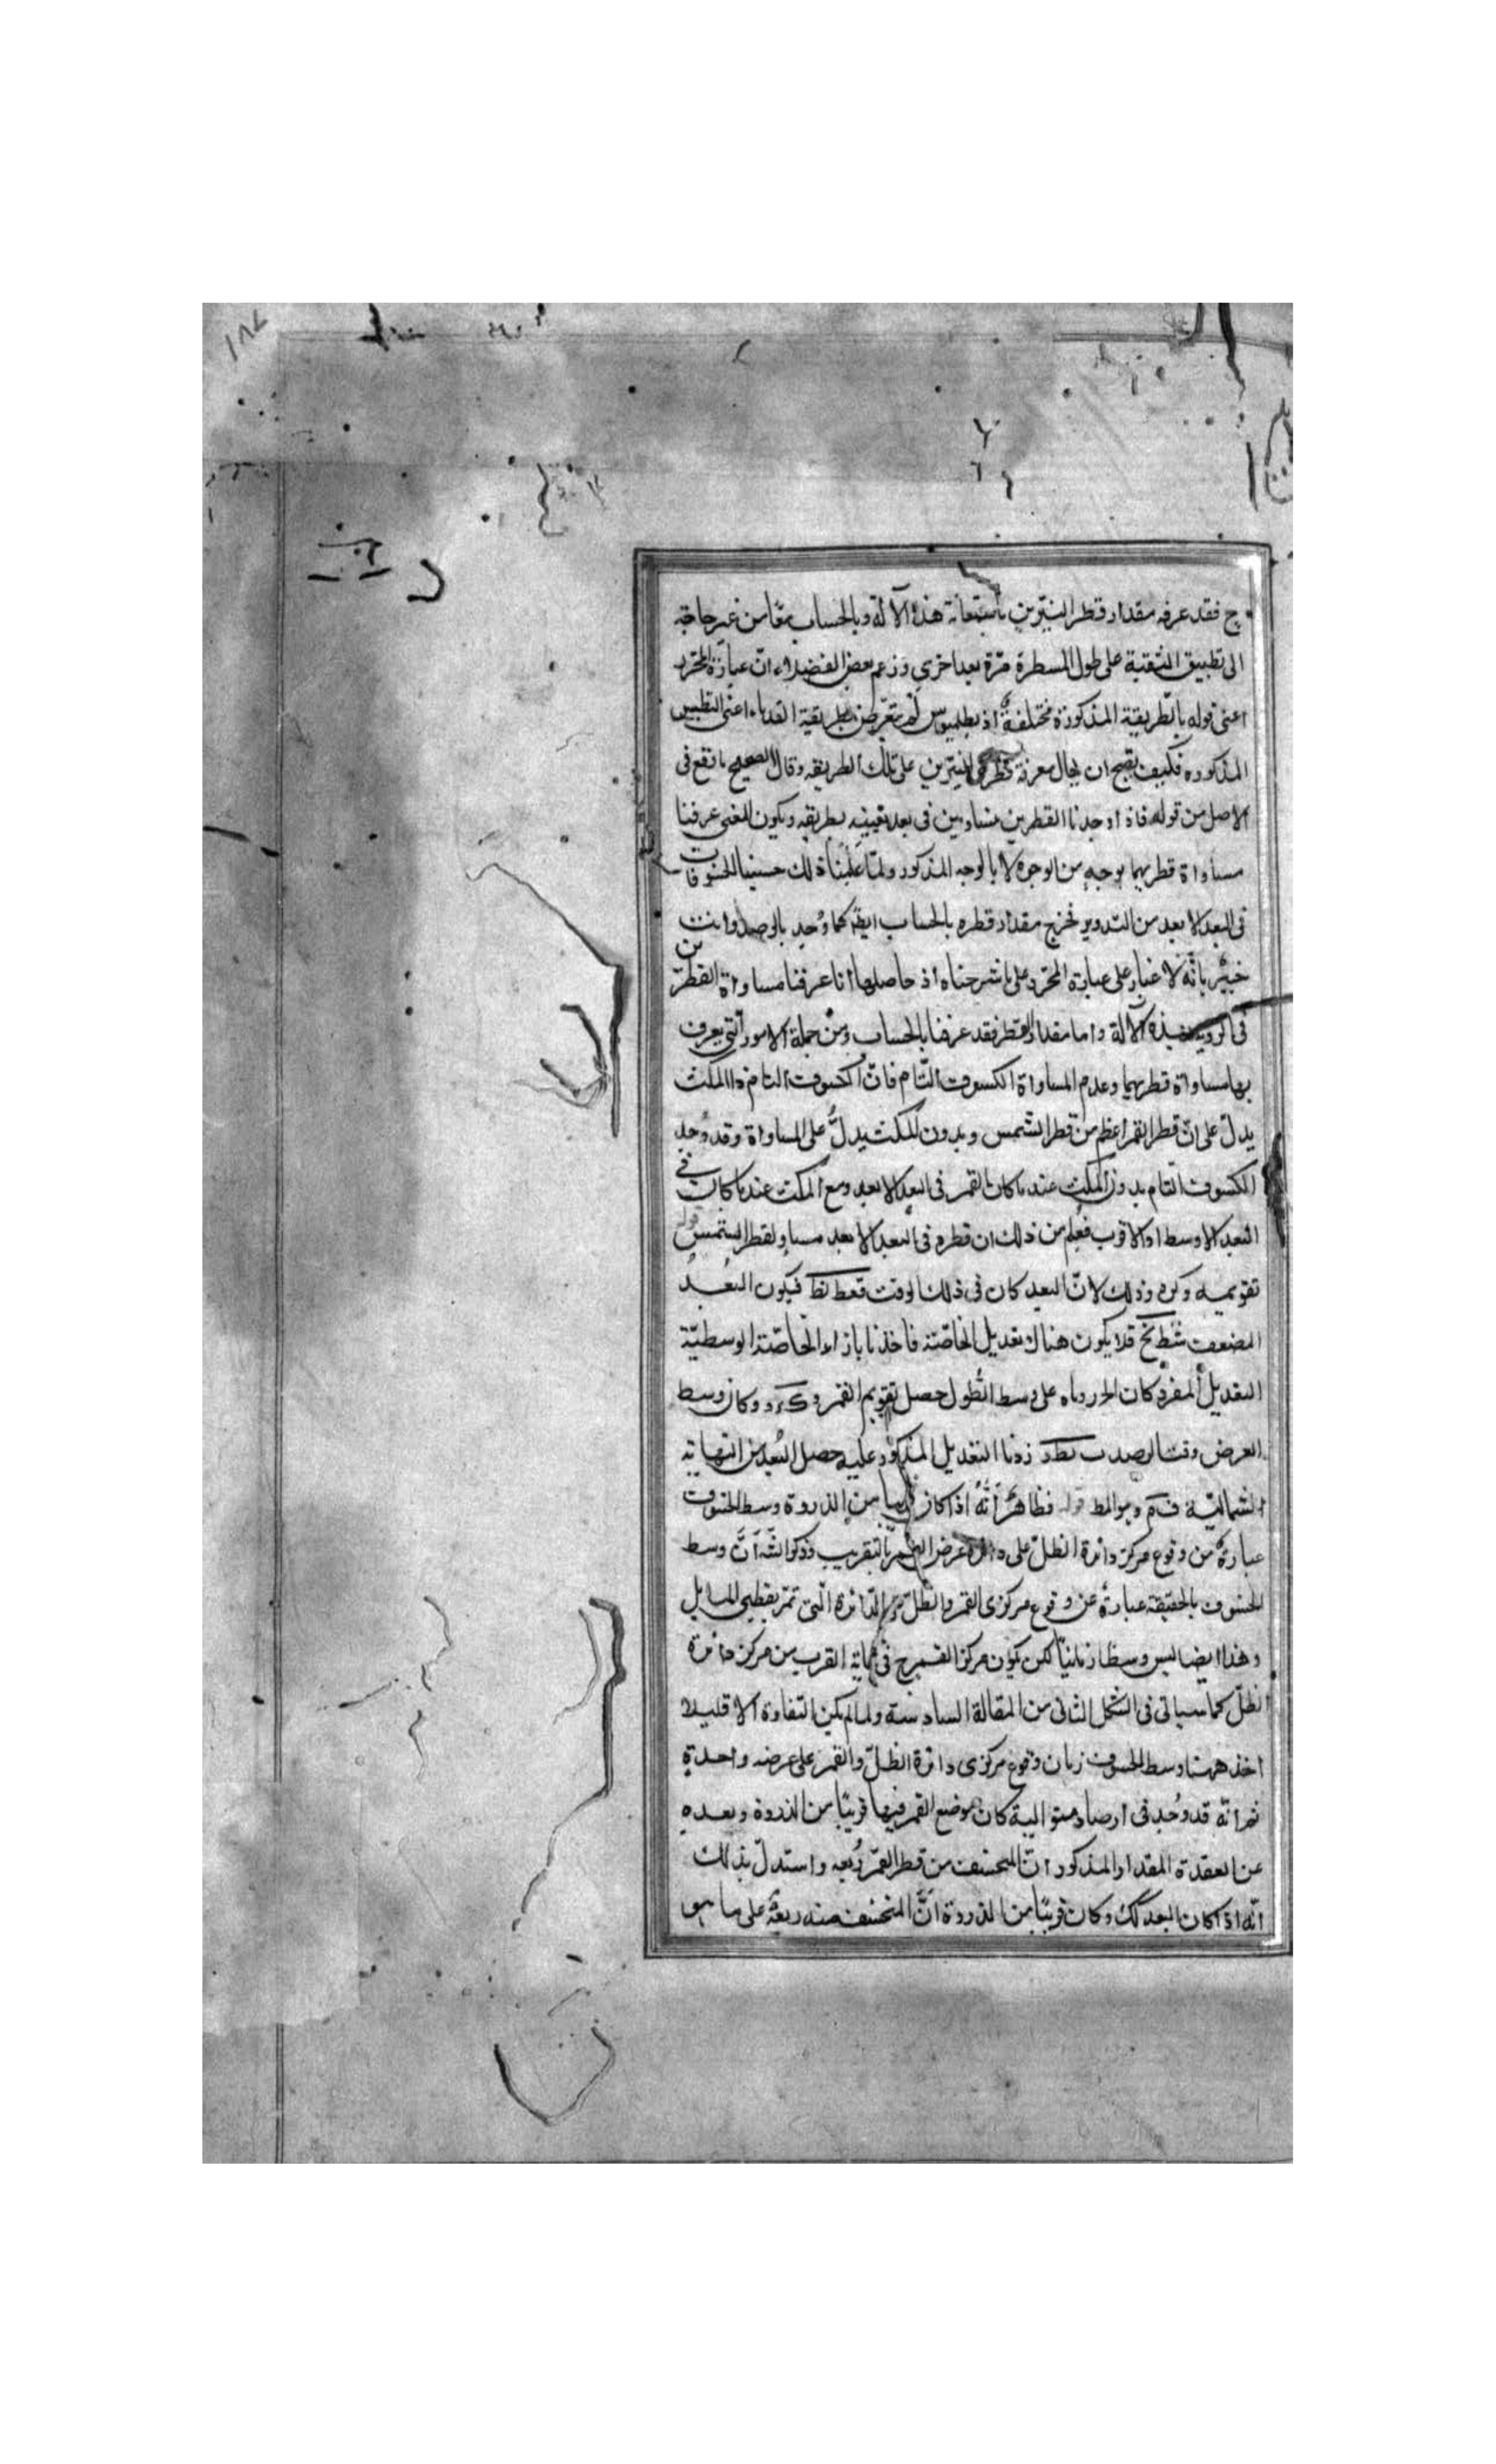 ١٨٧
ج فقد عرفه مقدار قطر النيّرين باستعانة هذه الآلة وبالحساب معًا من غير حاجة
الى تطبيق الثقبة على طول المسطرة مرّة بعد اخرى وزعم بعض الفضلاء انّ عبارة المحرّر
اعنى قوله بالطّريقة المذكورة مختلفة اذ بطلميوس لم يتعرّض لطريقة القدماء اعنى التطبيق
المذكوره فكيف يصح ان يحال معرفة قطرى النيّرين على تلك الطريقه وقال الصحيح ما وقع فى
الاصل من قوله فاذا وجدنا القطرين متساويين فى بعد بعينه بطريقه ويكون المعنى عرفنا
مساواة قطريهما بوجهٍ من الوجوه لا بالوجه المذكور ولمّا علمنا ذلك حسبنا الخسوفات
فى البعد الابعد من التدوير فخرج مقدار قطره بالحساب ايضًا كما وُجد بالرصد وانت
خبيْر بانّه لا غبار على عبارة المحرّر على ما شرحناه اذ حاصلها انا عرفنا مساواة القطرين
فى الروية بهذه الآلة واما مقدار القطر فقد عرفنا بالحساب ومن جملة الامور الّتى يعرف
بها مساواة قطريهما وعدم المساواة الكسوف التّام فانّ الكسوف التام ذا المكث
يدلّ على انّ قطر القمر اعظم من قطر الشمس وبدون المكث يدلُّ على المساواة وقد وُجد
الكسوف التام بدون المكث عند ما كان القمر فى البعد الابعد ومع المكث عند ما كان فى
البعد الاوسط او الاقرب فعُلِم من ذلك ان قطره فى البعد الابعد مساوٍ لقطر الشمس قوله
تقويمه وكره وذلك لانّ البعد كان فى ذلك الوقت قعط نط فيكون البُعدُ
المضعف شنط نح فلا يكون هناك تعديل الخاصّة فاخذنا بازاء الخاصّة الوسطيّة
التعديل المفرد كان وزدناه على وسط الطّول حصل تقويم القمر وكان وسط
العرض وقت الرصد زدنا التعديل المذكور عليه حصل البُعد من النهاية
الشماليّة وهو المط قوله فظاهرٌ أَنَّهُ اذا كان قريبا من الذروة وسط الخسوف
عبارةٌ عن وقوع مركز دائرة الظلّ على دائرة عرض القمر بالتقريب وذكرا انّه أَنَّ وسط
الخسوف بالحقيقة عبارة عن وقوع مركزى القمر والظلّ على الدّائرة الّتى تمرّ بقطبى المايل
وهذا ايضا ليس وسطا زمانيّا لكن يكون مركز القمر ح فى نهاية القرب من مركز دائرة
الظلّ كما سياتى فى الشكل الثانى من المقالة السادسة ولما لم يكن التفاوة الا قليلا
اخذ همنا وسط الخسوف زمان وقوع مركزى دائرة الظلّ والقمر على عرضه واحدةٍ
ثم انّه قد وُجد فى ارصاد متوالية كان موضع القمر فيها قريبًا من الذروة وبعده
عن العقدة المقدار المذكور انّ المنخسف من قطر القمر رُبعه واستدلّ بذلك
انّه اذا كان البعد كك وكان قريبًا من الذروة انَّ المنخسف منه ربعهُ على ما هو